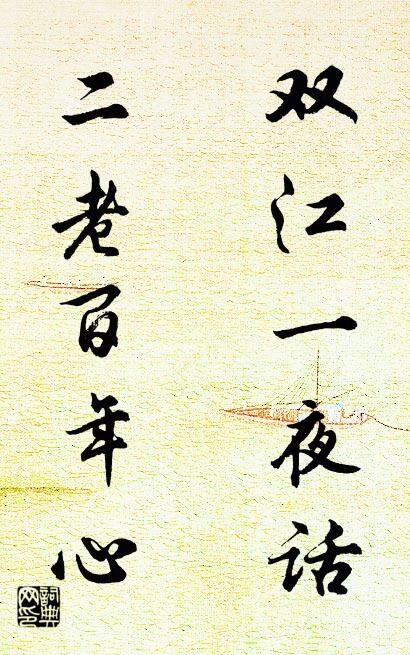 双江一夜话
二老百年心
詞典
网印